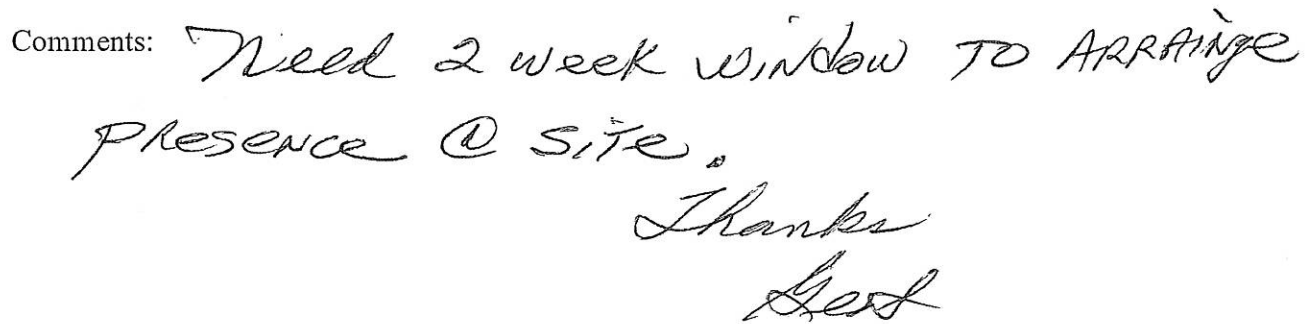 Comments: Need 2 week window TO ARRAINge
PResence @ site.
Thanks